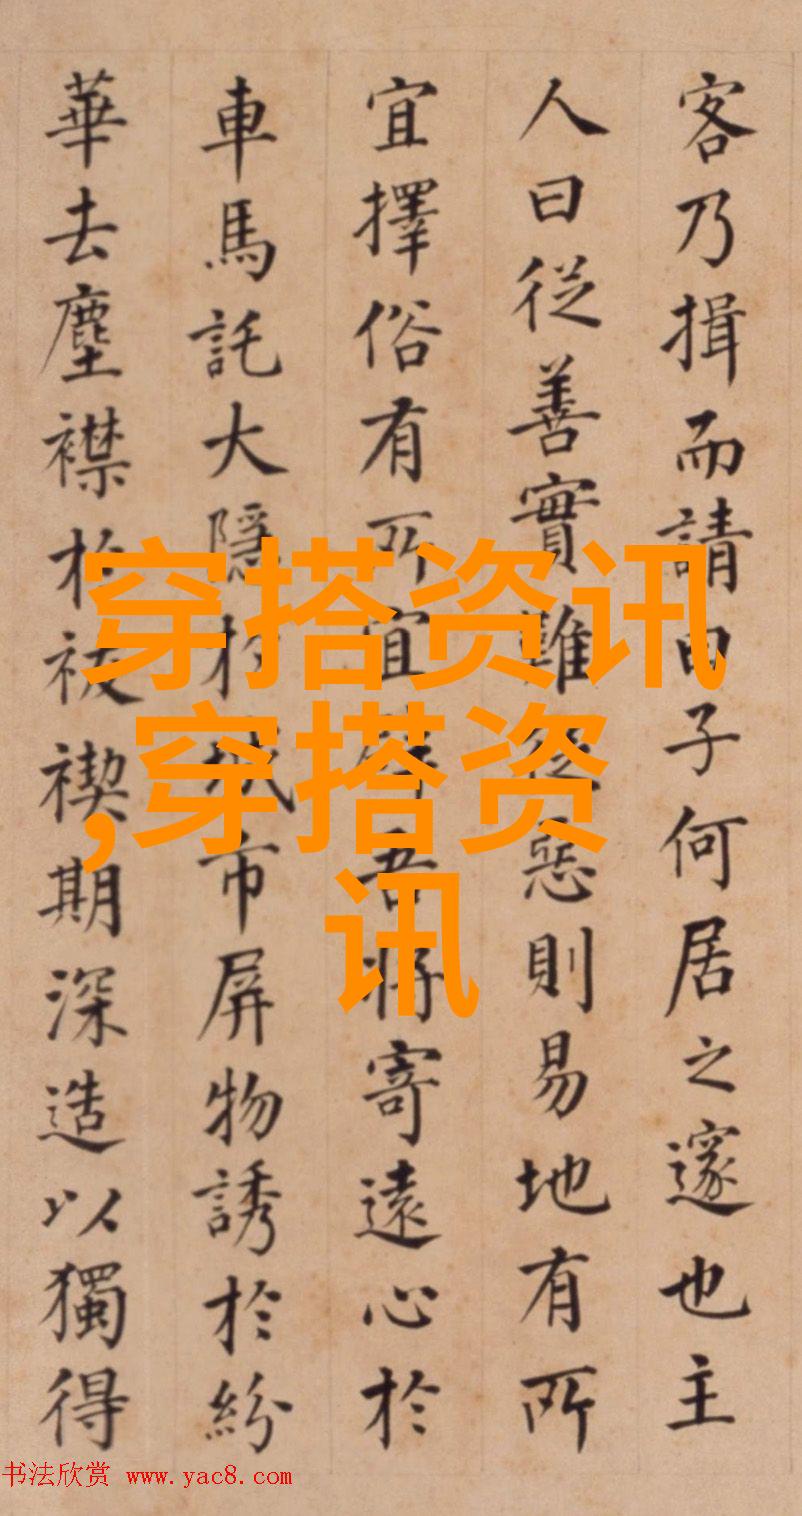 客乃揖而請曰子何居之邃也主
人曰從善實難從惡則易地有所
宜擇俗有所宜吾將寄遠心於
車馬託大隱於城市屏物誘於紛
華去塵襟於袚禊期深造以獨得
穿搭资讯
,穿搭资
讯
书法欣赏 www.yac8.com